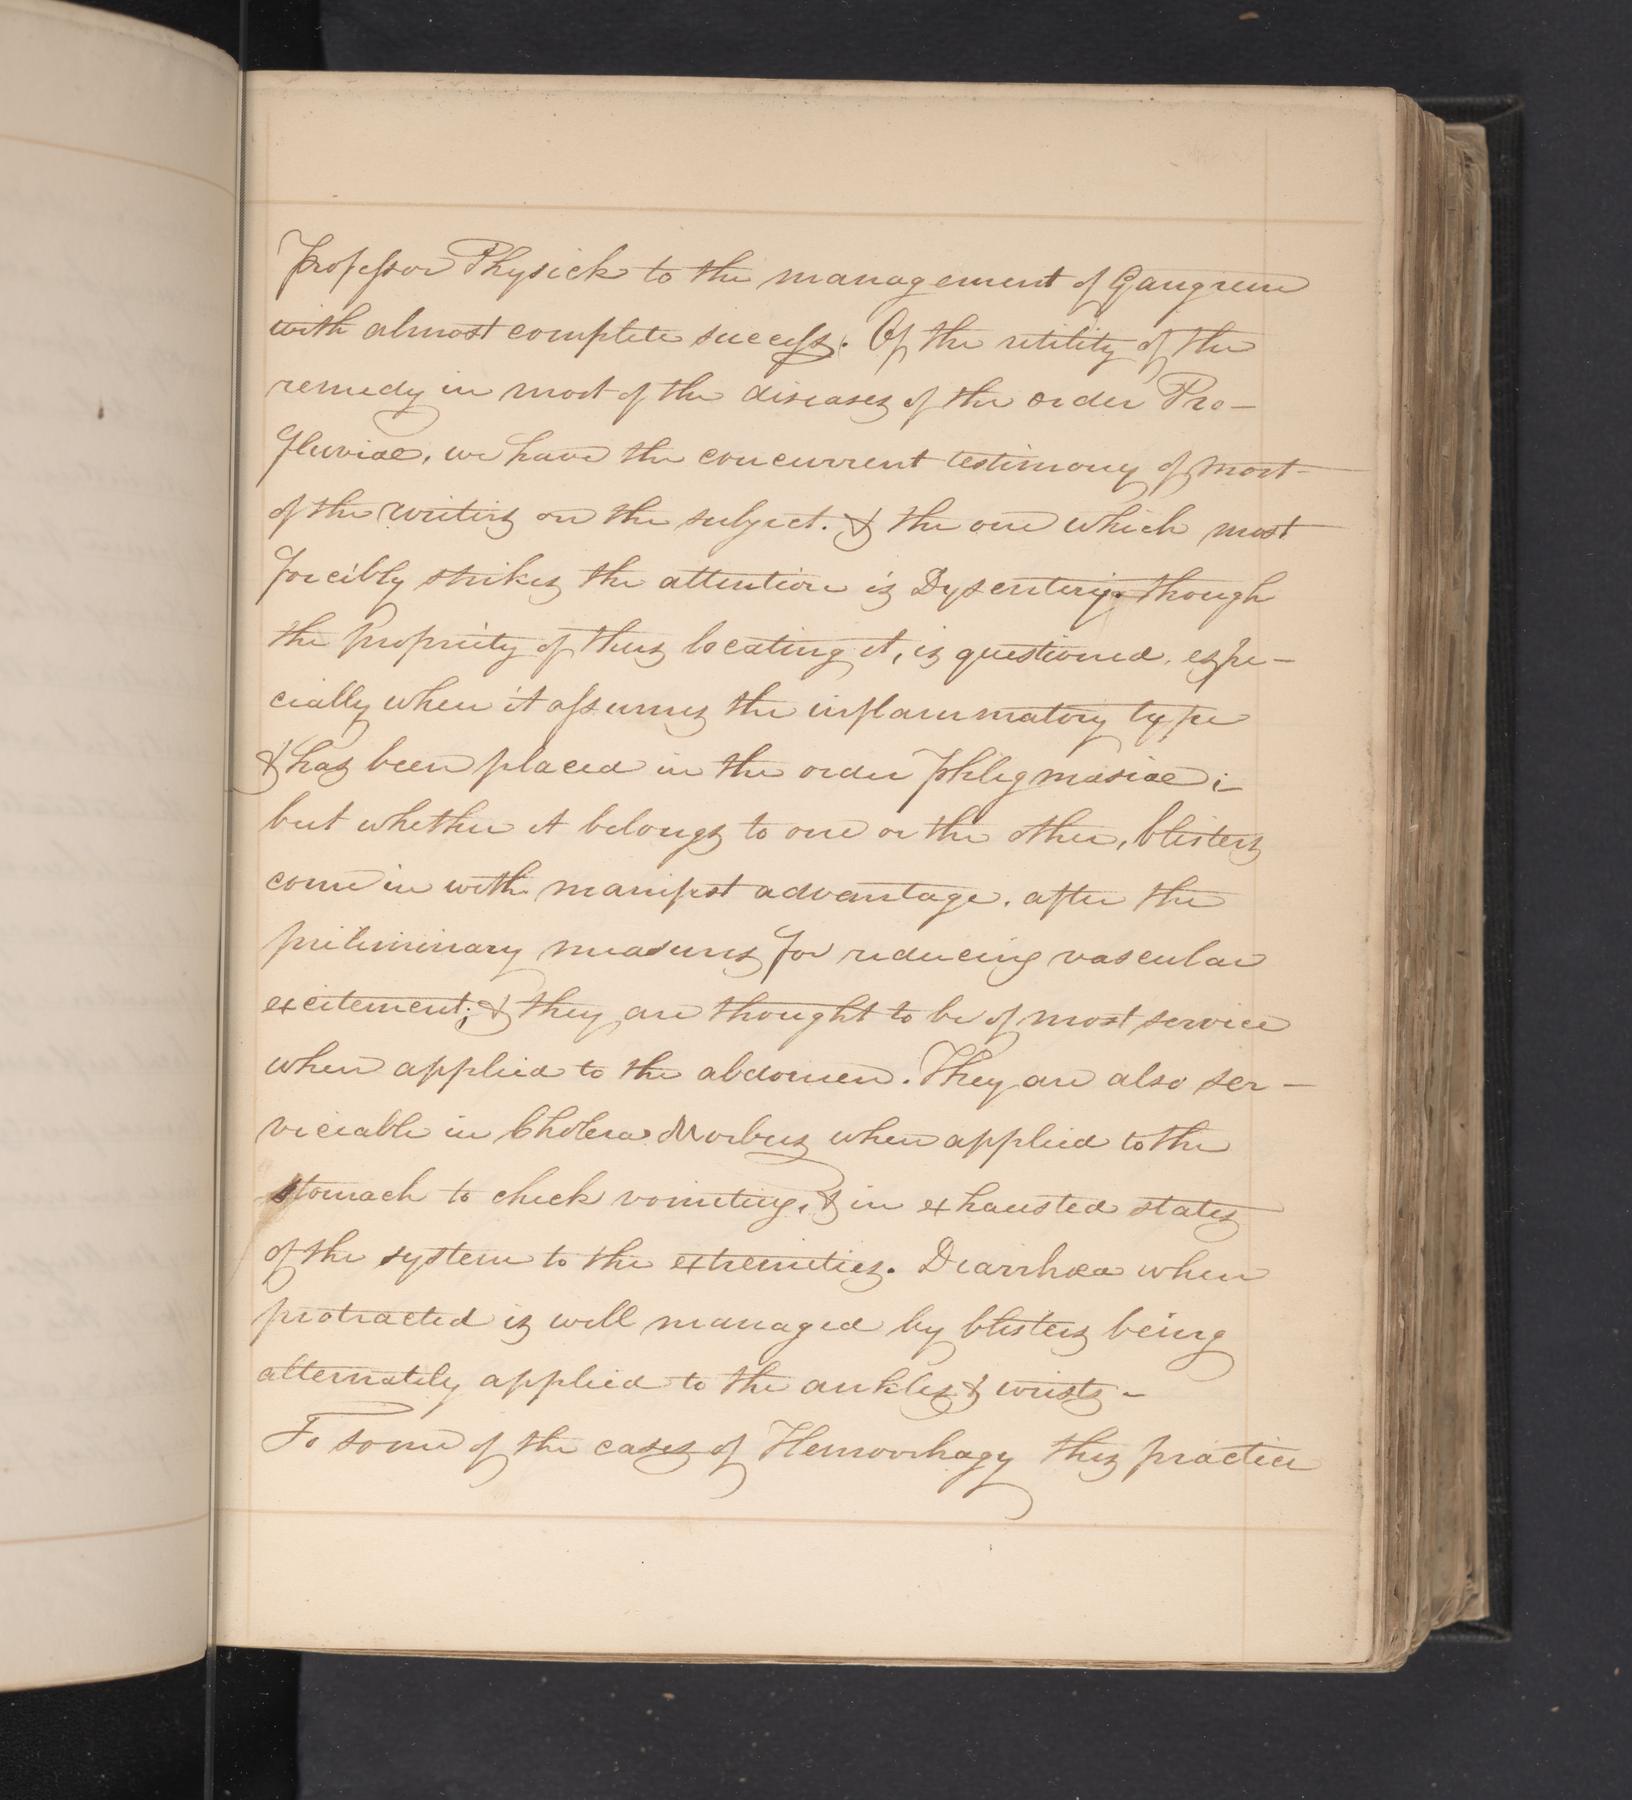 Professor Physick to the management of Gangrene
with almost complete success. Of the utility of the
remedy in most of the diseases of the order Pro-
fluviae, we have the concurrent testimony of most
of the writers on the subject. & the one which most
forcibly strikes the attention is Dysentery. though
the propriety of thus locating it, is questioned, espe-
cially when it assumes the inflammatory type
& has been placed in the order phlegmasiae;
but whether it belongs to one or the other, blisters
come in with manifest advantage. after the
preliminary measures for reducing vascular
excitement; & they are thought to be of most service
when applied to the abdomen. They are also ser-
viceable in Cholera Morbus when applied to the
stomach to check vomiting, & in exhausted states
of the system to the extremities. Diarrhœa when
protracted is well managed by blisters being
alternately applied to the ankles & wrists -
To some of the cases of Hemorrhagy this practice